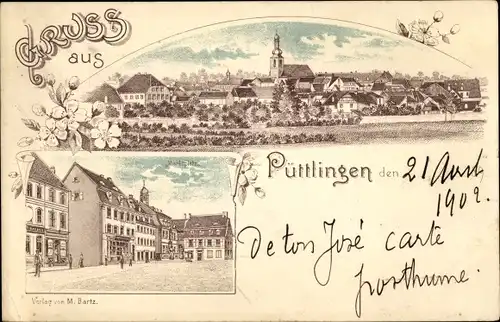 GRUSS
aus
Marktplatz
Püttlingen den 21 Avril
1902
de ton José carte
posthume.
Verlag von M. Bartz.